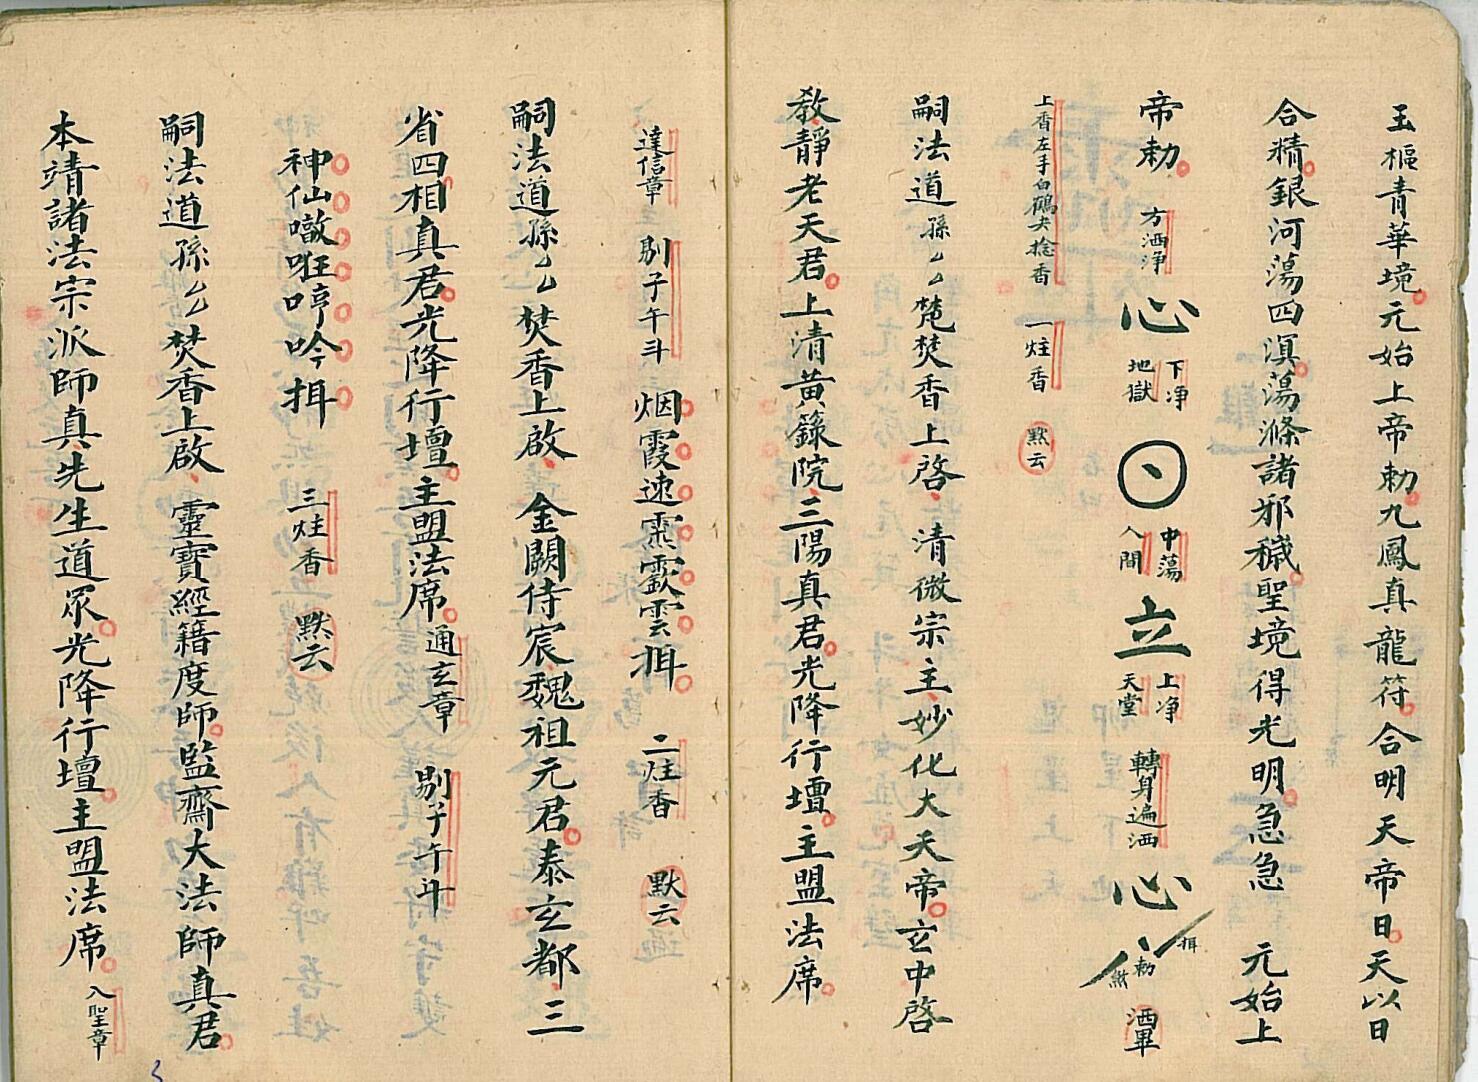 玉樞青華境元始上帝勅九鳳真龍符合明天帝日天以日
合精銀河蕩四溟蕩滌諸邪穢聖境得光明急急 元始上
帝勅 方洒淨 心 下净地獄 中蕩人間 立 上净天堂 轉身遍洒 心 揖 勅 煞 洒畢
上香左手白鶴夫捻香 一炷香 默云
嗣法道孫厶厶焚香上啓 清微宗主妙化大天帝玄中啓
教靜老天君上清黄籙院三陽真君光降行壇主盟法席
達信章 剔子午斗 烟霞速雲 揖 二炷香 默云
嗣法道孫厶厶焚香上啟 金闕侍宸魏祖元君泰玄都三
省四相真君光降行壇主盟法席 通玄章 剔子午斗
神仙噉啀哼吟揖 三炷香 默云
嗣法道孫厶厶焚香上啟 靈寶經籍度師監齋大法師真君
本靖諸法宗派師真先生道眾光降行壇主盟法席 入聖章